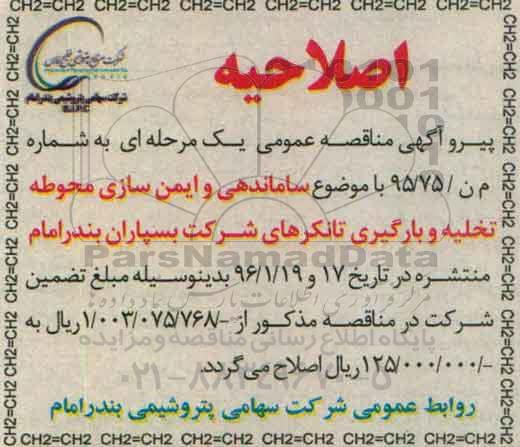 CH2=CH2 CH2=CH2 CH2=CH2 CH2=CH2 CH2=CH2 CH2=CH2
شرکت سهامی پتروشیمی بندرامام
B.I.P.C
اصلاحیه
پیرو آگهی مناقصه عمومی یک مرحله ای به شماره
م ن / ۹۵/۷۵ با موضوع ساماندهی و ایمن سازی محوطه
تخلیه و بارگیری تانکرهای شرکت بسپاران بندرامام
منتشره در تاریخ ۱۷ و ۹۶/۱/۱۹ بدینوسیله مبلغ تضمین
شرکت در مناقصه مذکور از -/۱/۰۰۳/۰۷۵/۷۶۸ ریال به
-/۱۲۵/۰۰۰/۰۰۰ ریال اصلاح می گردد.
روابط عمومی شرکت سهامی پتروشیمی بندرامام
ParsNamadData
پایگاه اطلاع رسانی مناقصه و مزایده
CH2=CH2 CH2=CH2 CH2=CH2 CH2=CH2 CH2=CH2 CH2=CH2